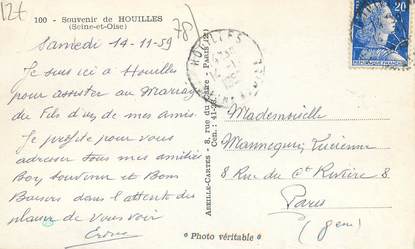 12t
78)
100 - Souvenir de HOUILLES
(Seine-et-Oise)
Samedi 14-11-59
Je suis ici à Houilles
pour assister au Mariage
du Fils d'un de mes amis.
Je profite pour vous
adresser tous mes amitiés
Bon Souvenir et Bons
Baisers dans l'attente du
plaisir de vous voir
ABEILLE-CARTES - 8, rue du Caire - PARIS (2e)
Cen. : 41-28
HOUILLES
20
Mademoiselle
Mannequin Lucienne
8 Rue du Ct Rivière 8
Paris
(8em)
" Photo véritable "